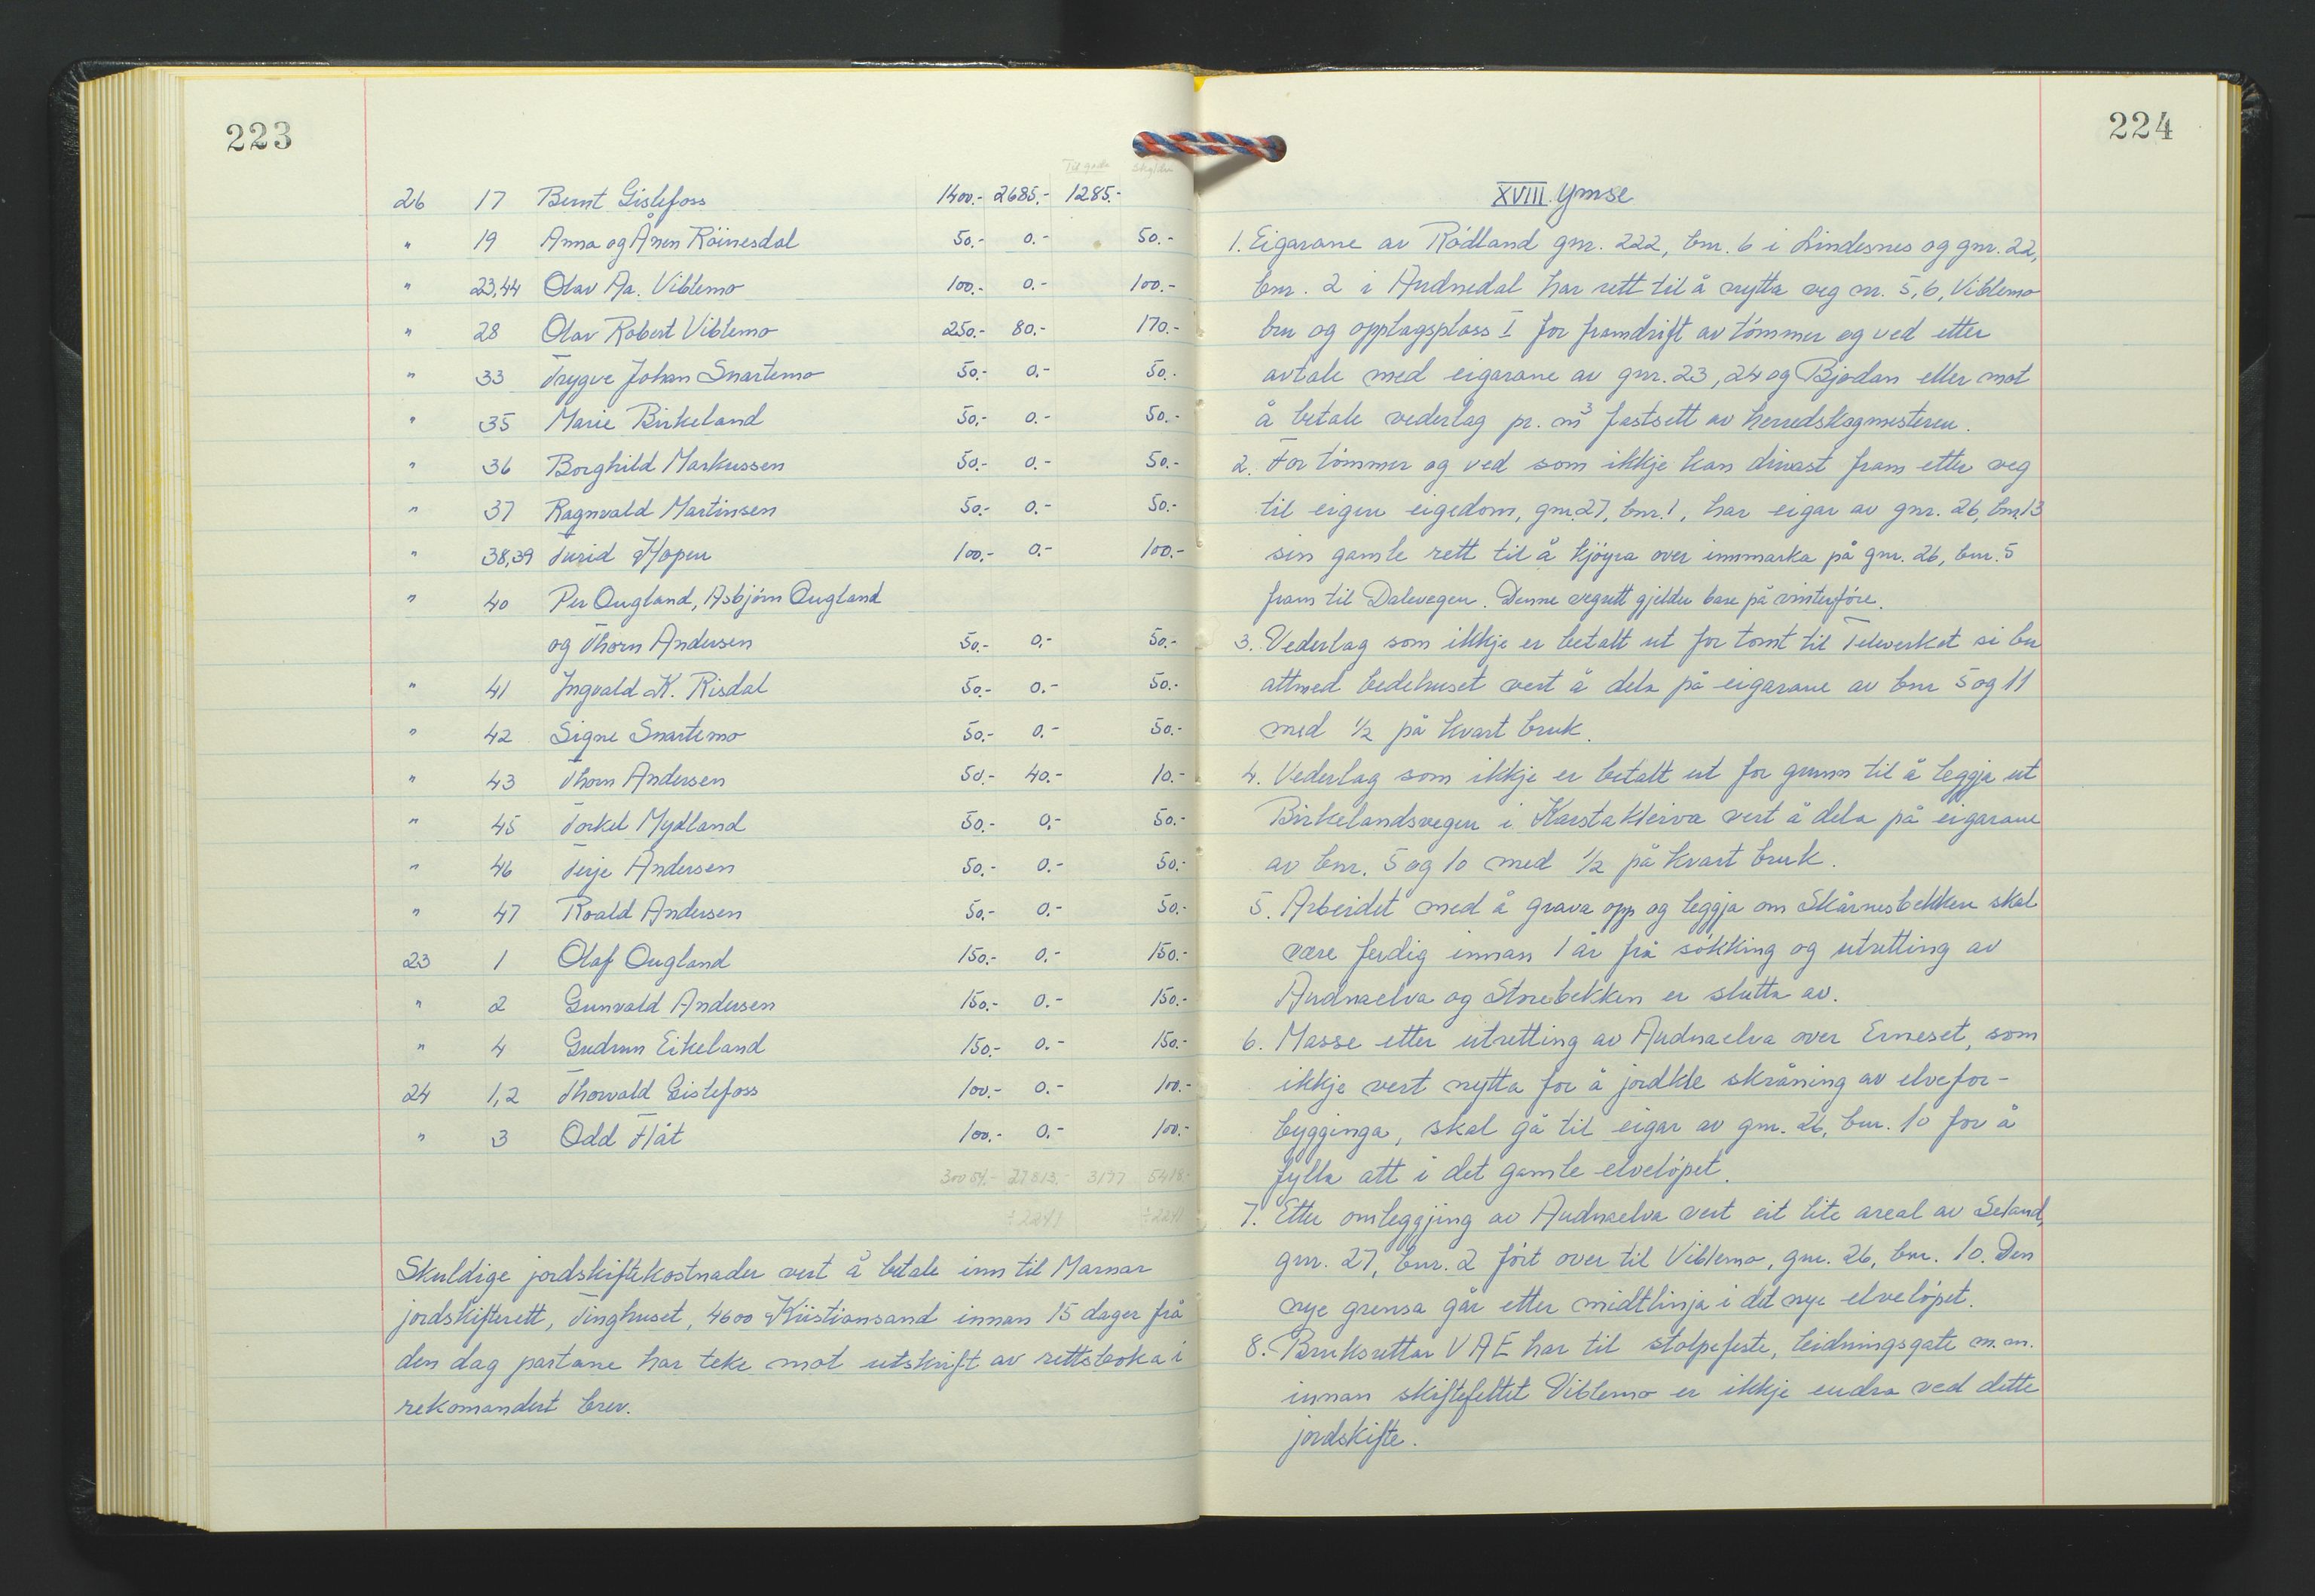 223
Til gode Skyldn
26 17 Bernt Gislefoss 1400.- 2685.- 1285.-
" 19 Anna og Ånen Röinesdal 50.- 0.- 50.-
" 23,44 Olav Aa. Viblemo 100.- 0.- 100.-
" 28 Olav Robert Viblemo 250.- 80.- 170.-
" 33 Trygve Johan Snartemo 50.- 0.- 50.-
" 35 Marie Birkeland 50.- 0.- 50.-
" 36 Borghild Markussen 50.- 0.- 50.-
" 37 Ragnvald Martinsen 50.- 0.- 50.-
" 38,39 Turid Hopen 100.- 0.- 100.-
" 40 Per Ougland, Asbjörn Ougland
og Thorn Andersen 50.- 0.- 50.-
" 41 Ingvald K. Risdal 50.- 0.- 50.-
" 42 Signe Snartemo 50.- 0.- 50.-
" 43 Thorn Andersen 50.- 40.- 10.-
" 45 Torkel Mydland 50.- 0.- 50.-
" 46 Terje Andersen 50.- 0.- 50.-
" 47 Roald Andersen 50.- 0.- 50.-
23 1 Olaf Ougland 150.- 0.- 150.-
" 2 Gunvald Andersen 150.- 0.- 150.-
" 4 Gudrun Eikeland 150.- 0.- 150.-
24 1,2 Thorvald Gislefoss 100.- 0.- 100.-
" 3 Odd Flåt 100.- 0.- 100.-
30054.- 27813.- 3177 5418.-
÷2241 ÷2241
Skuldige jordskiftekostnader vert å betale inn til Marnar
jordskifterett, Tinghuset, 4600 Kristiansand innan 15 dager frå
den dag partane har teke mot utskrift av rettsboka i
rekomandert brev.
224
XVIII. Ymse
1. Eigarane av Rödland gnr. 222, bnr. 6 i Lindesnes og gnr. 22,
bnr. 2 i Audnedal har rett til å nytta veg nr. 5, 6, Viblemo
bru og opplagsplass I for framdrift av tömmer og ved etter
avtale med eigarane av gnr. 23, 24 og Bjodan eller mot
å betale vederlag pr. m³ fastsett av herredskogmesteren.
2. For tömmer og ved som ikkje kan drivast fram etter veg
til eigen eigedom, gnr. 27, bnr. 1, har eigar av gnr. 26, bnr. 13
sin gamle rett til å kjöyra over innmarka på gnr. 26, bnr. 5
fram til Dalevegen. Denne vegrett gjelder bare på vinterföre.
3. Vederlag som ikkje er betalt ut for tomt til Televerket si bu
attmed bedehuset vert å dela på eigarane av bnr 5 og 11
med 1/2 på kvart bruk.
4. Vederlag som ikkje er betalt ut for grunn til å leggja ut
Birkelandsvegen i Karstakleiva vert å dela på eigarane
av bnr. 5 og 10 med 1/2 på kvart bruk.
5. Arbeidet med å grava opp og leggja om Skårnesbekken skal
være ferdig innan 1 år frå sökking og utretting av
Audnaelva og Storebekken er slutta av.
6. Masse etter utretting av Audnaelva over Erneset, som
ikkje vert nytta for å jordkle skråning av elvefor-
bygginga, skal gå til eigar av gnr. 26, bnr. 10 for å
fylla att i det gamle elvelöpet.
7. Etter omleggjing av Audnaelva vert eit lite areal av Seland,
gnr. 27, bnr. 2 fört over til Viblemo, gnr. 26, bnr. 10. Den
nye grensa går etter midtlinja i det nye elvelöpet.
8. Bruksrettar VAE har til stolpefeste, leidningsgate m.m.
innan skiftefeltet Viblemo er ikkje endra ved dette
jordskifte.